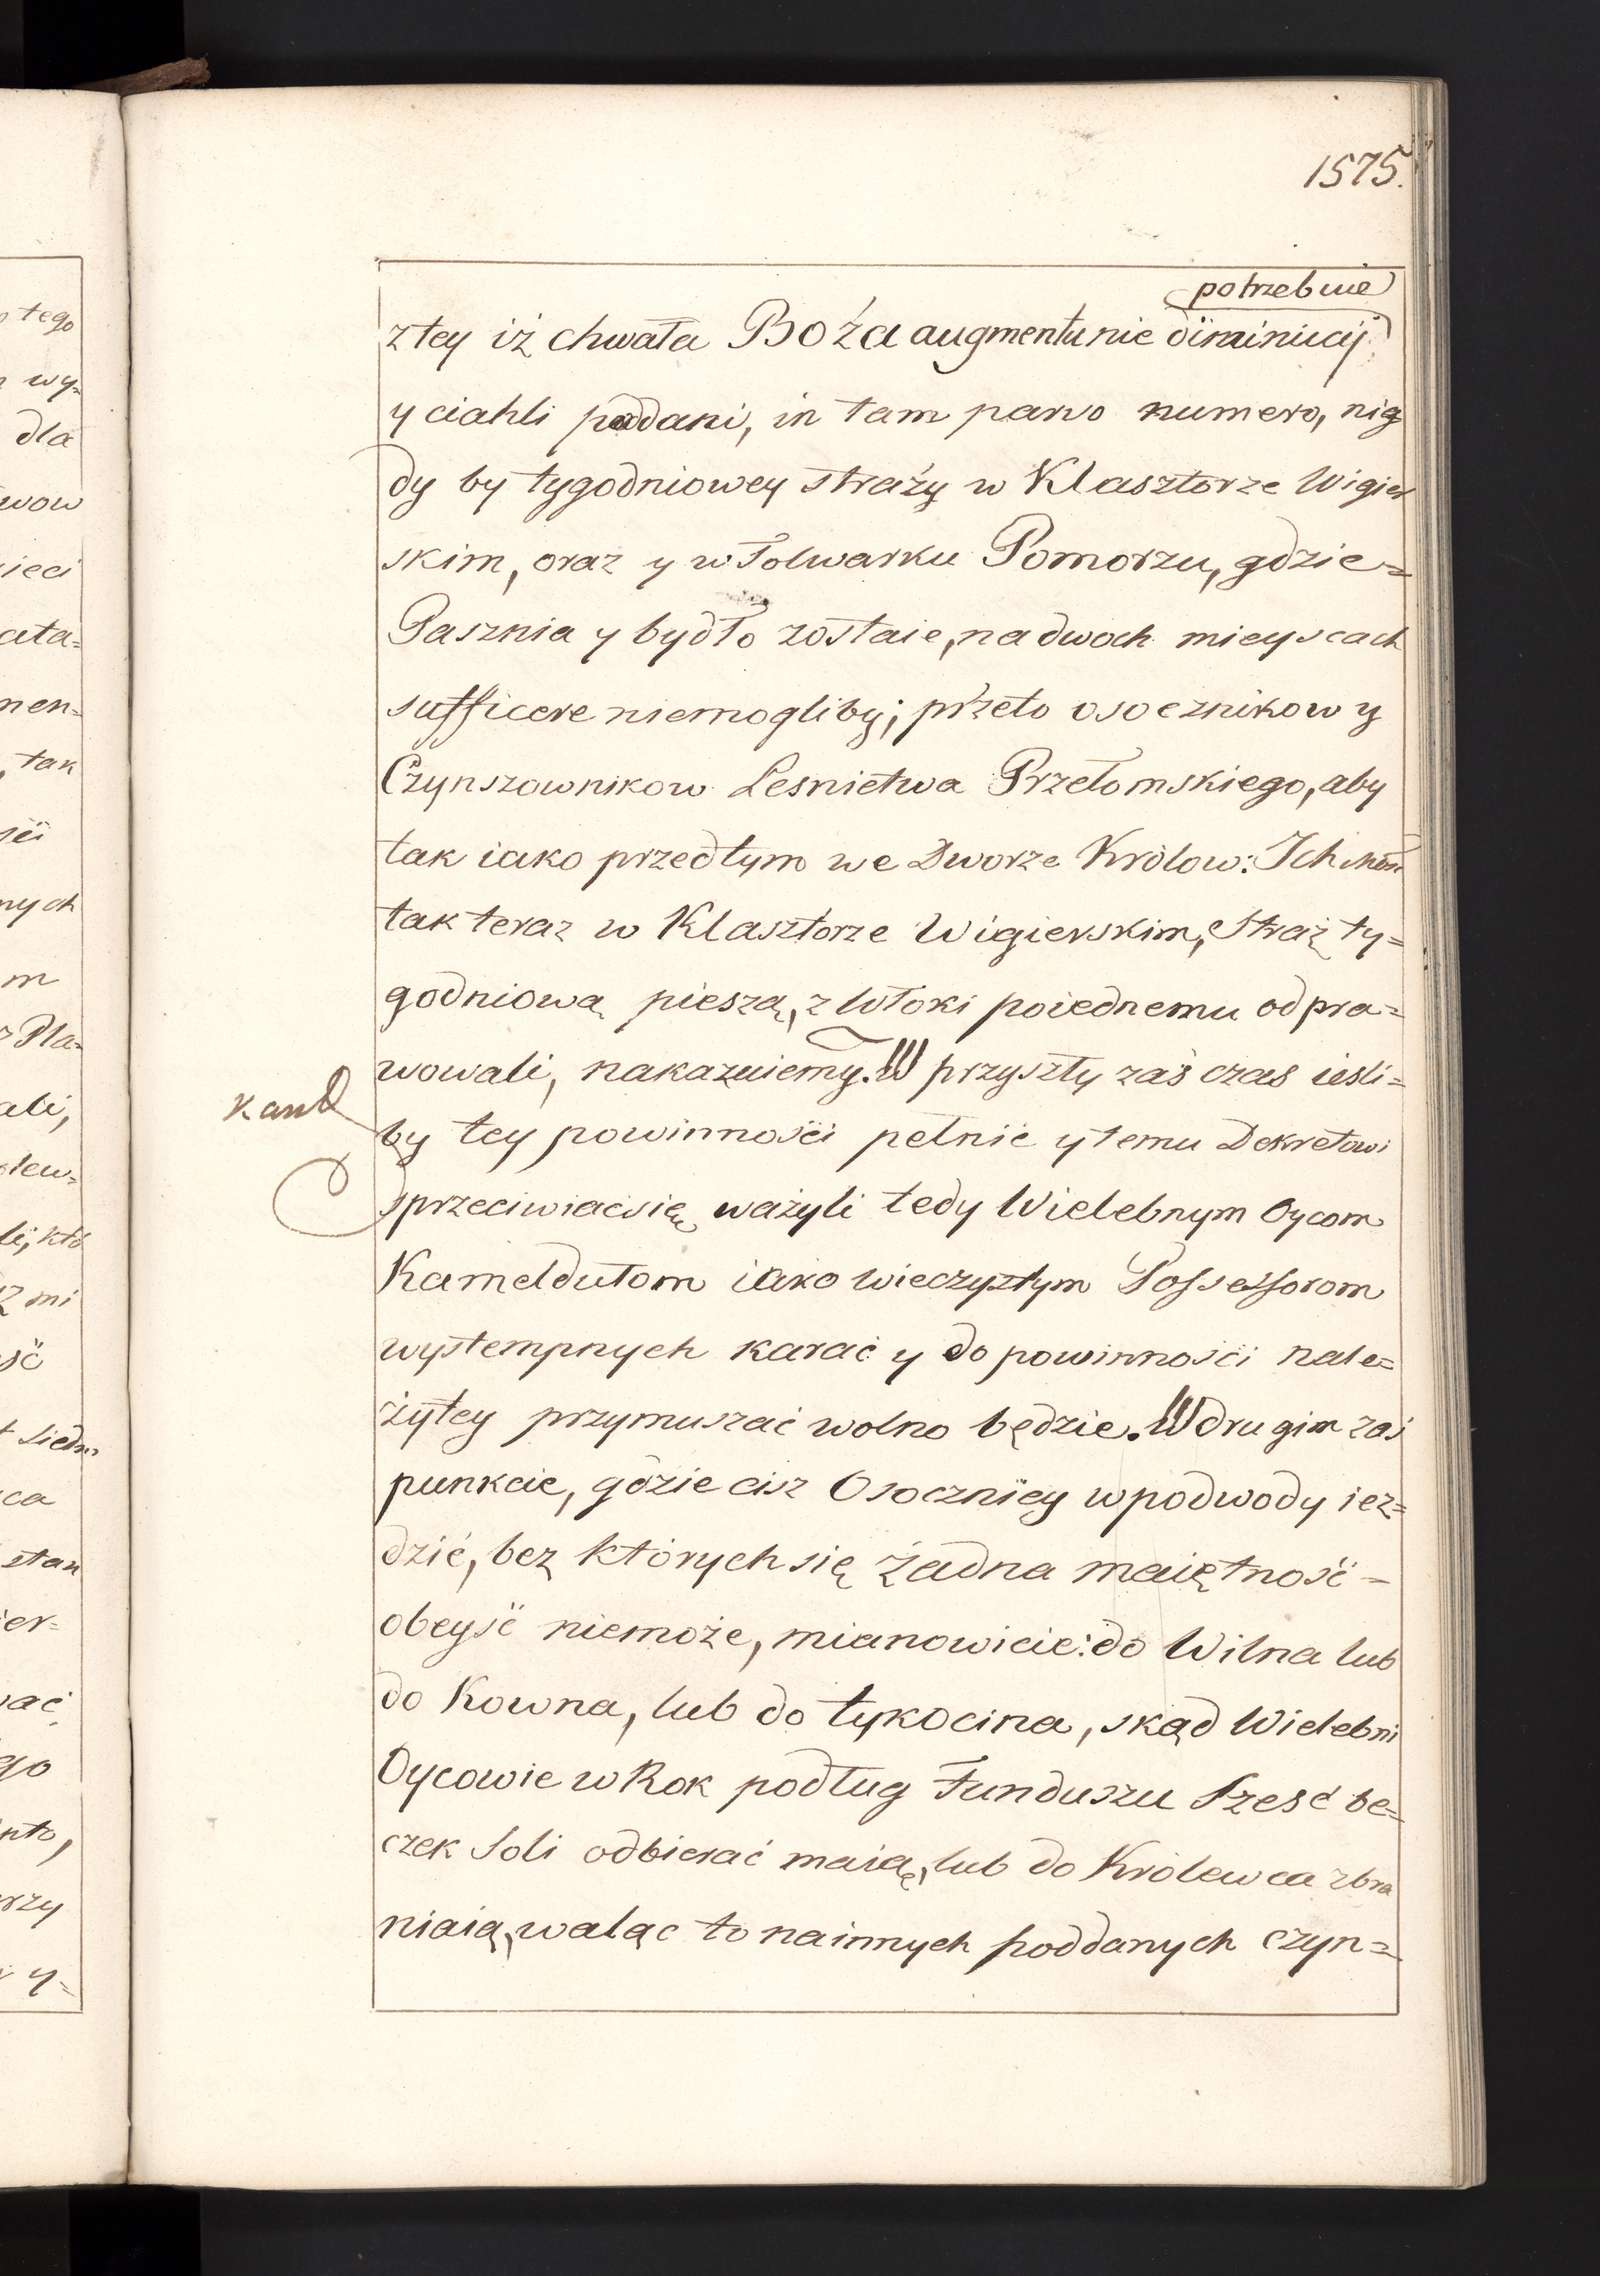 1575.
potrzebuie
z tey iż chwała Boża augmentu nie diminucij
y ciahli poddani, in tam parvo numero, nig
dy by tygodniowey straży w Klasztorze Wigier
skim, oraz y w Folwarku Pomorzu, gdzie=
Pasznia y bydło zostaie, na dwoch mieyscach
sufficere niemogliby; przeto osocznikow y
Czynszownikow Lesnictwa Przełomskiego, aby
tak iako przedtym we Dworze Królow: Ich Mośći
tak teraz w Klasztorze Wigierskim, Straż ty=
godniową pieszą, z Włoki poiednemu odpra=
wowali, nakazuiemy. W przyszły zaś czas iesli=
by tey powinnośći pełnić y temu Dekretowi
sprzeciwiać się ważyli tedy Wielebnym Oycom
Kameldułom iako wieczystym Possessorom
wystempnych karać y do powinnośći nale=
żytey przymuszać wolno będzie. W drugim zaś
punkcie, gdzie cisz Osocznicy w podwody iez=
dzić, bez których się żadna maiętność =
obeyść niemoże, mianowicie: do Wilna lub
do Kowna, lub do Tykocina, skąd Wielebni
Oycowie w Rok podług Funduszu Sześć be=
czek Soli odbierać maią, lub do Królewca zbra
niaią, waląc to na innych poddanych czyn=